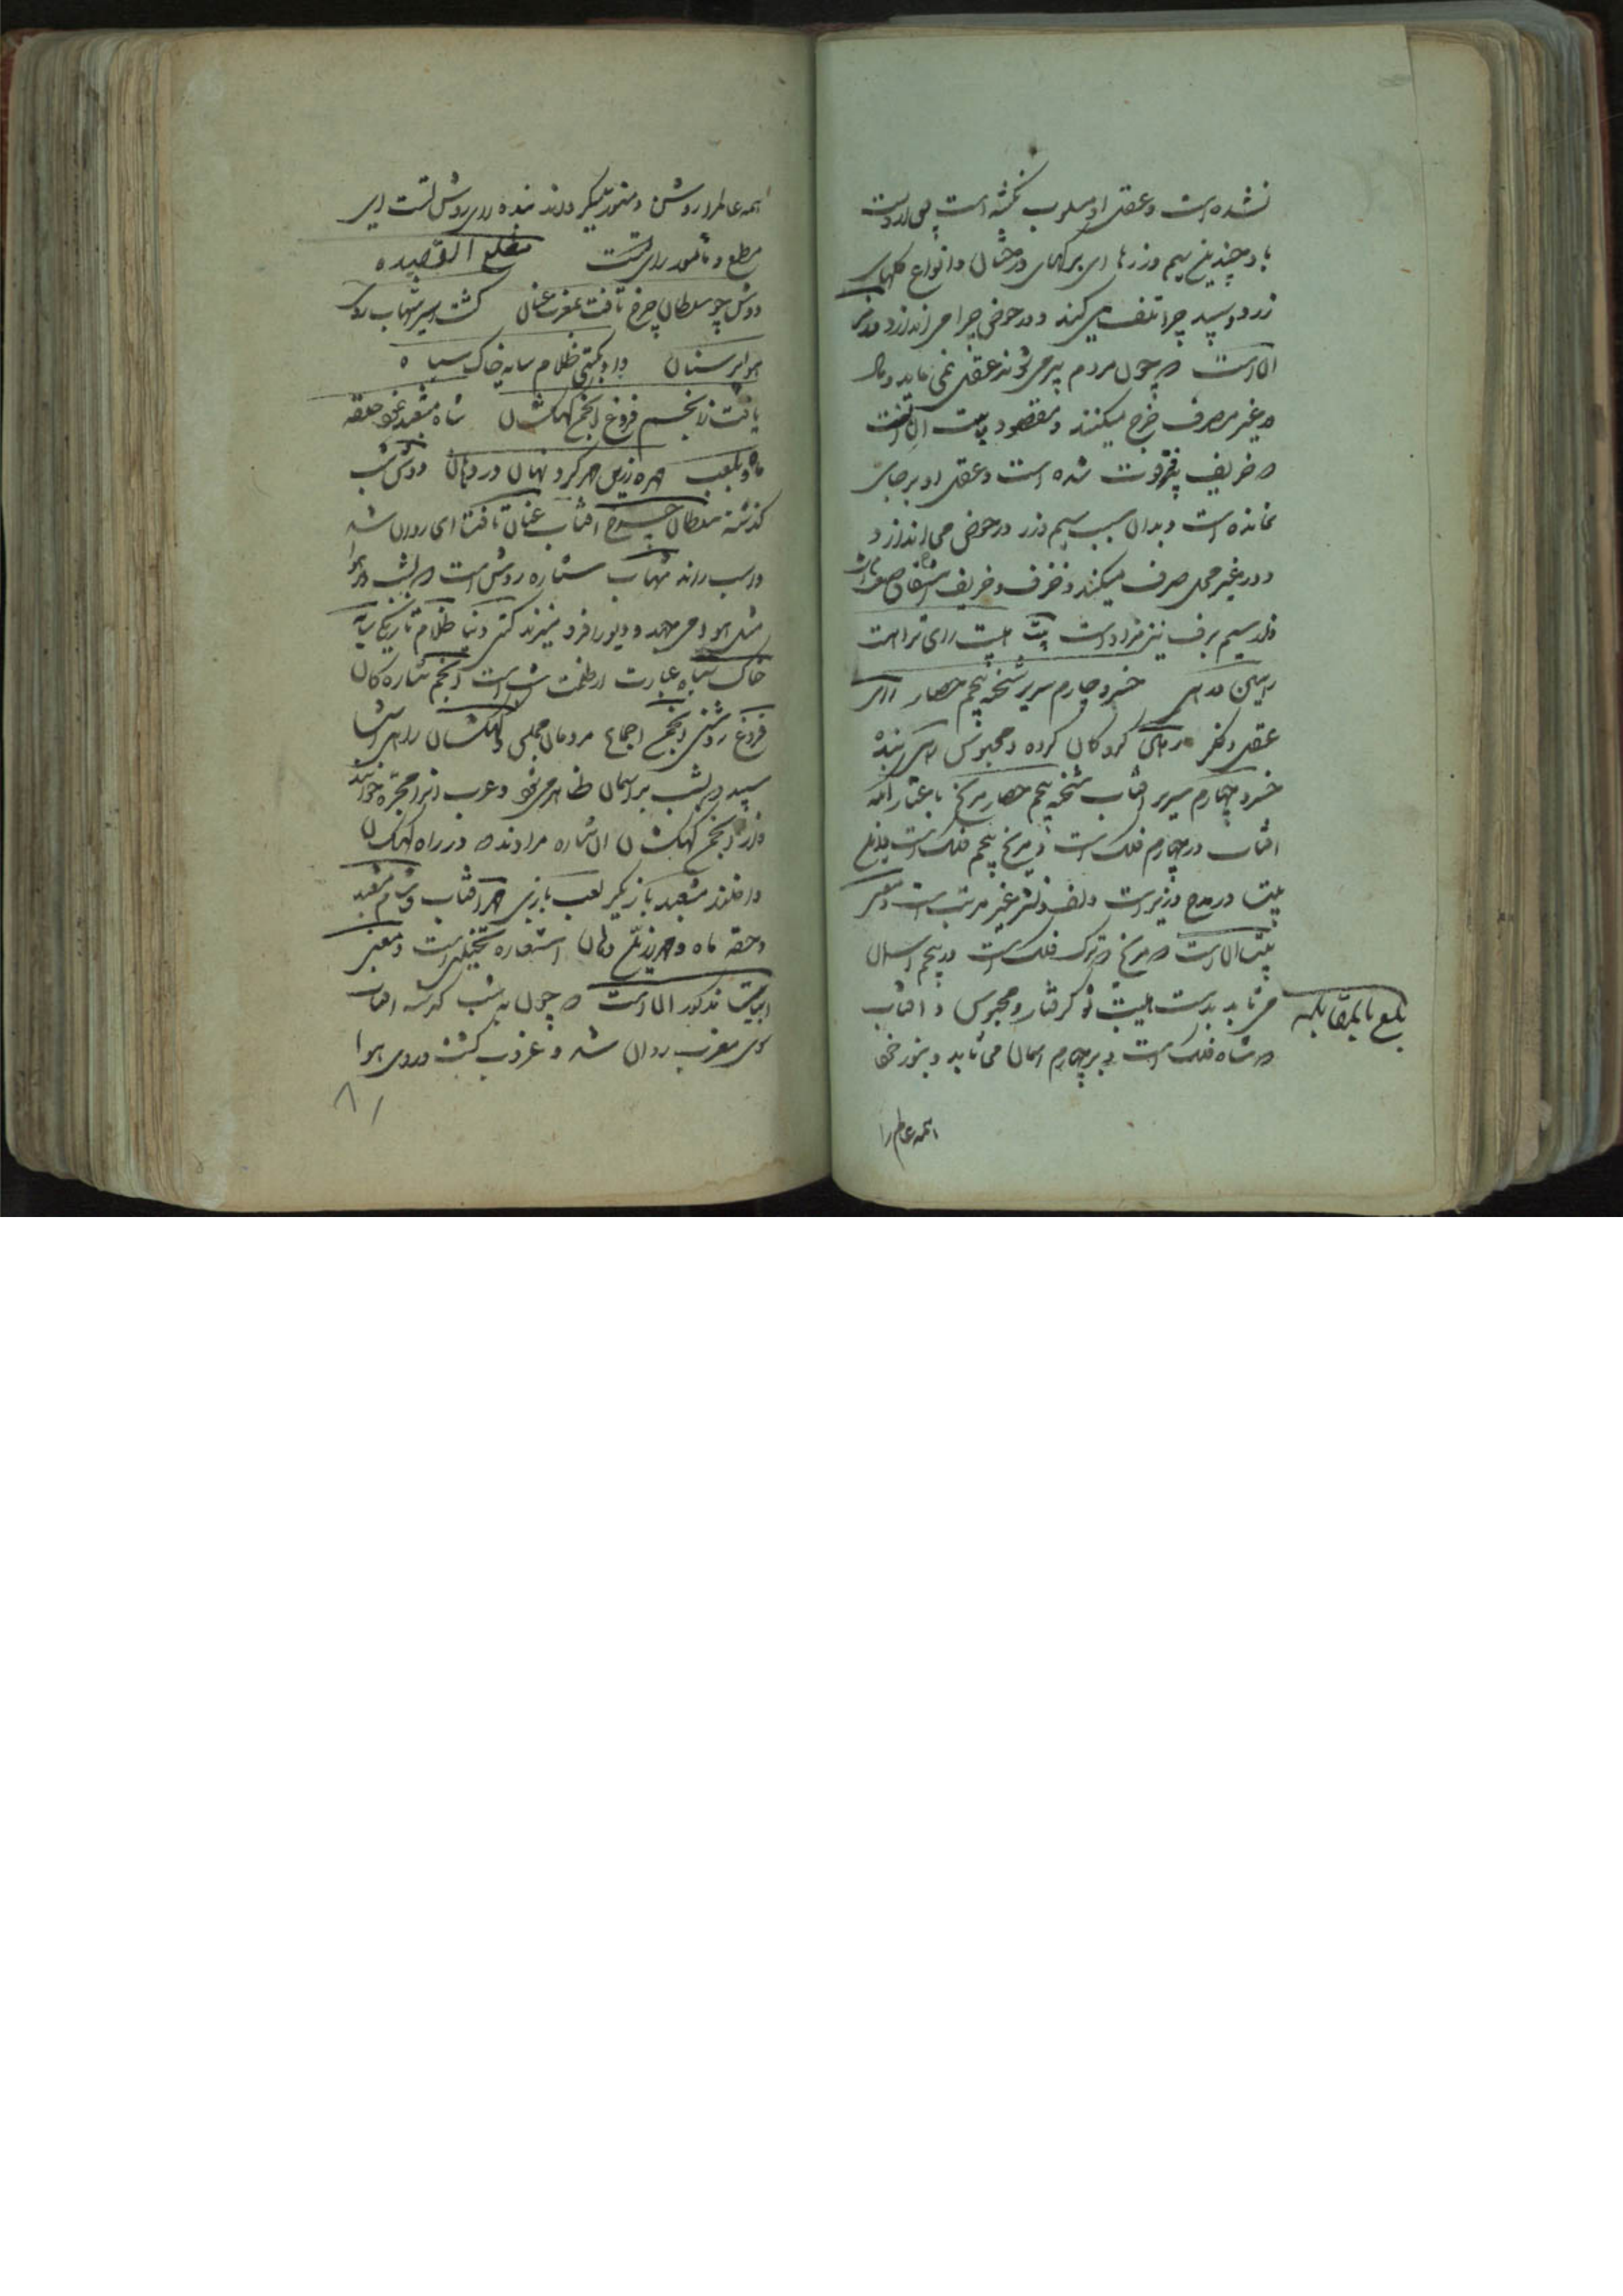 نشده است و عقل او مسلوب نگشته است پس
باد چندین سیم و زرها ای برگهای درختان و انواع گلهای
زرد و سپید چرا تلف می کند و در حوض چرا می اندازد
آن است که چون مردم پیر می شوند عقل نمی ماند و مال
در غیر مصرف خرج میکنند و مقصود بیت آن است
که خریف فرتوت شده است و عقل او بر جای
نمانده است و بدان سبب سیم و زر در حوض می اندازد
و در غیر محل صرف میکند و خرف و خریف اشتقاق
از سیم برف نیز مراد است بیت رای ترا است
رهین خسرو چارم سریر شحنه پنجم حصار ای
عقل و فکر گروگان کرده و محبوس رای بنده
خسرو چهارم سریر آفتاب شحنه پنجم حصار مریخ باعتبار آنکه
آفتاب در چهارم فلک است و مریخ پنجم فلک است
بیت در مدح وزیر است و لف و نشر غیر مرتب است و معنی
بیت آن است که مریخ که ترک فلک است در پنجم آسمان
می تابد بدست هیبت تو گرفتار و محبوس و آفتاب
که شاه فلک است و بر چهارم آسمان می تابد و بنور خود
بلغ بالمقابله
همه عالم را
همه عالم را روشن و منور میگرداند بنده رای روشن تست ای
مطیع و مامور رای تست مطلع القصیده
دوش چو سلطان چرخ تافت بمغرب عنان گشت اسیر شهاب روی
هوا پر سنان داد بگیتی ظلام سایه خاک سیاه
یافت ز انجم فروغ انجمن کهکشان شام مشعبد نمود حقه
ماه و بلعب مهره زرین مهر کرد نهان در دهان دوش شب
گذشته سلطان چرخ آفتاب عنان تافت ای روان شد
و اسب راند شهاب ستاره روشن است که بشب در هوا
مثل می جهد و دیو را فرو میزند گیتی دنیا ظلام تاریکی سایه
خاک سیاه عبارت از ظلمت شب است انجم ستارگان
فروغ روشنی انجمن اجماع مردمان مجلس و کهکشان راهی است
سپید که بشب بر آسمان ظاهر می شود و عرب آنرا مجره خوانند
و از انجمن کهکشان آن ستاره مرادند که در راه کهکشان
داخلند مشعبد بازیگر لعب بازی مهر آفتاب و شام مشعبد
و حقه ماه و مهره زرین و دهان استعاره تخییلی است و معنی
ابیات مذکور آن است که چون بشب گذشته آفتاب
سوی مغرب روان شد و غروب گشت و روی هوا
۸۱